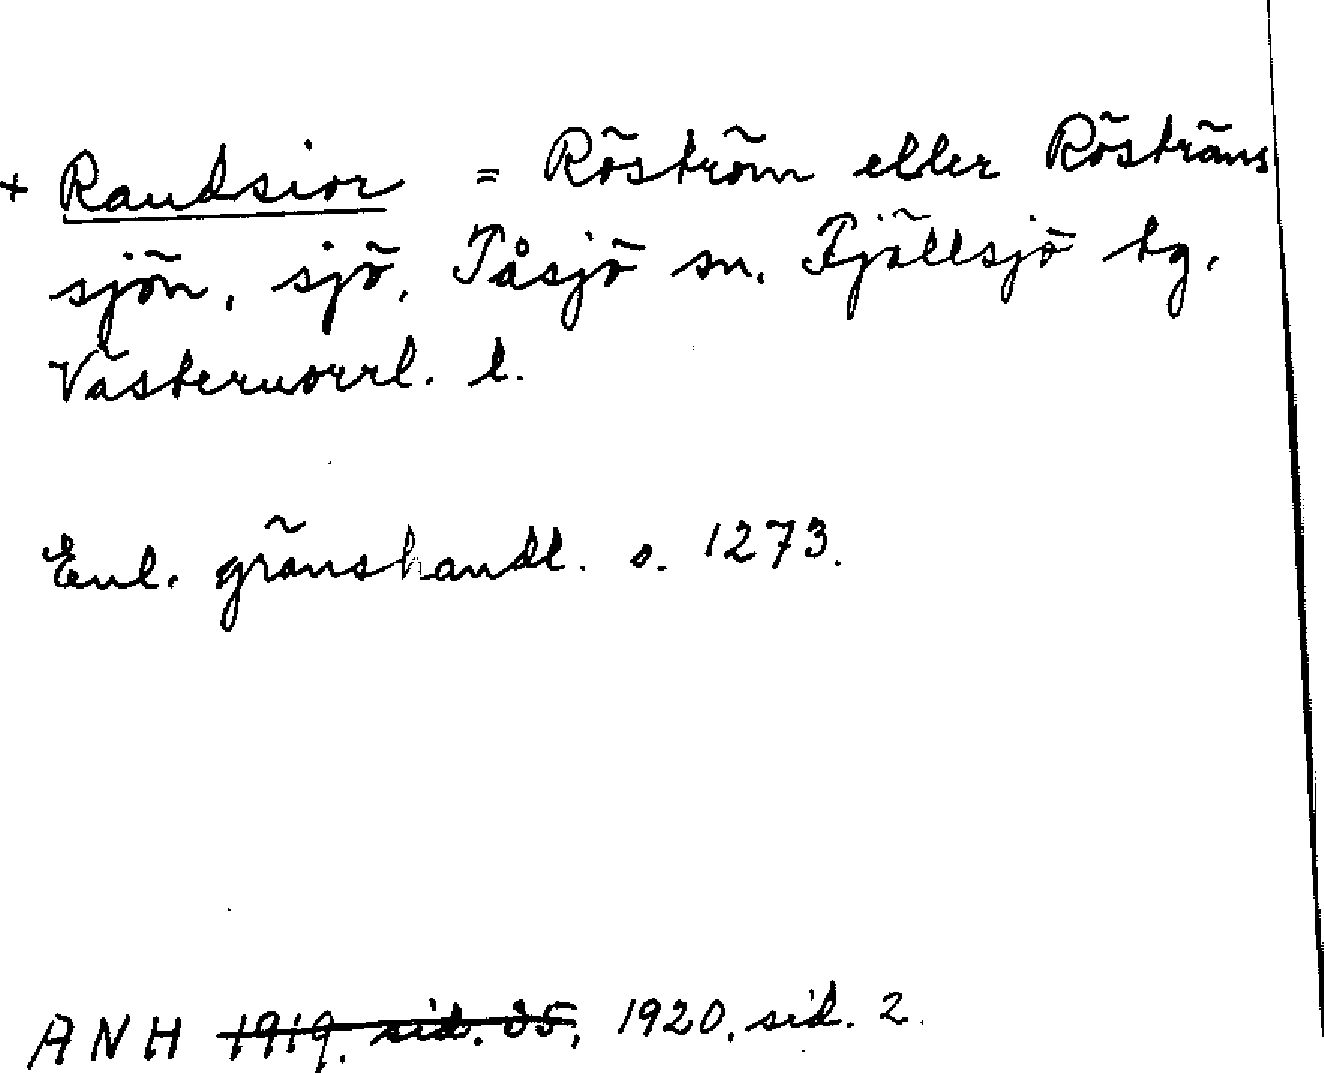 + Raudsior = Röström eller Rösträns
sjön, sjö, Tåsjö sn. Fjällsjö tg,
Västernorrl. l.
Enl. gränshandl. s. 1273.
ANH 1919. sid. 35, 1920, sid. 2.